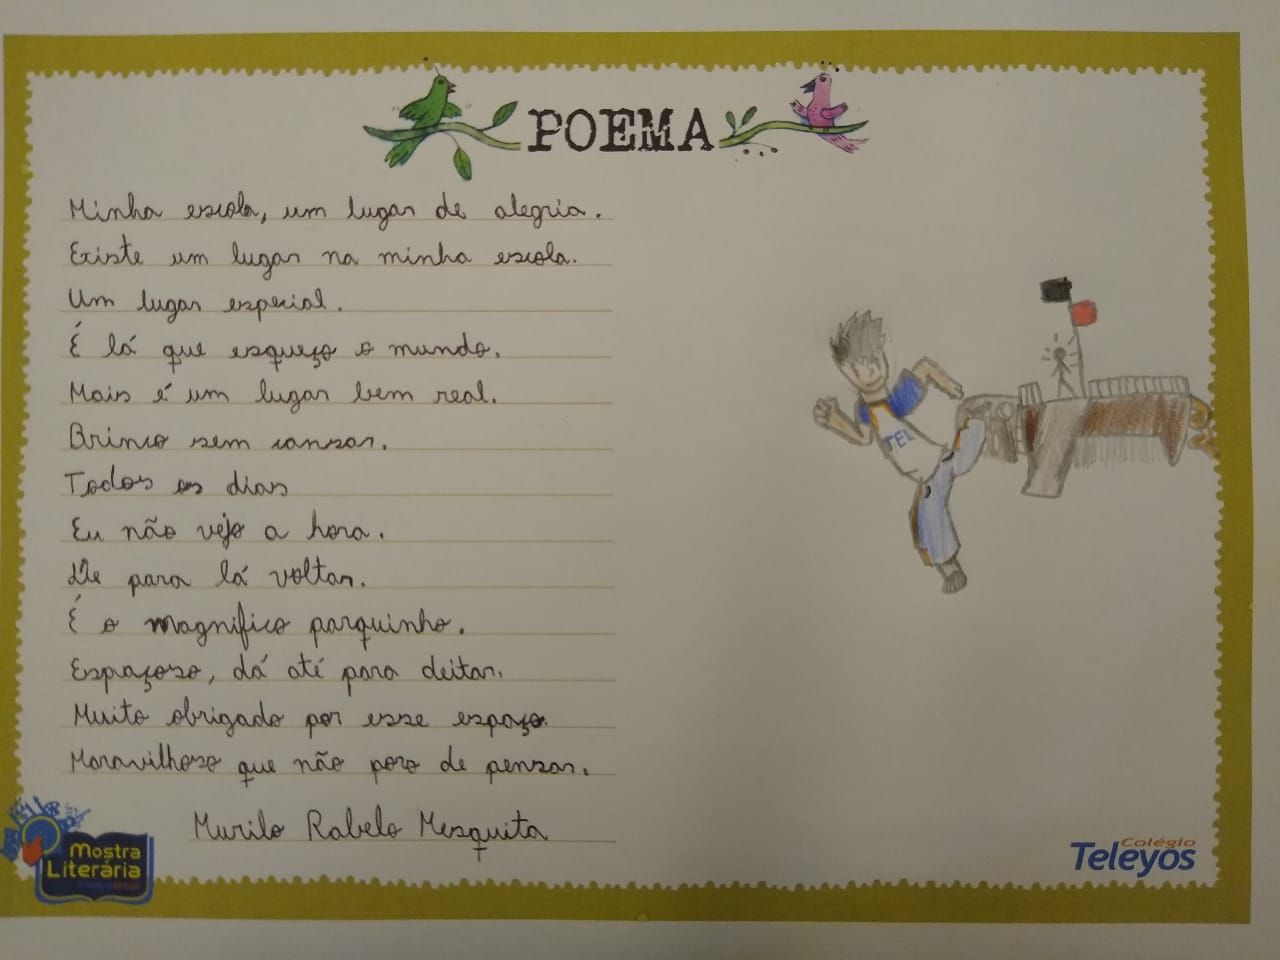 POEMA
Minha escola, um lugar de alegria.
Existe um lugar na minha escola.
Um lugar especial.
É lá que esqueço o mundo.
Mais é um lugar bem real.
Brinco sem cansar.
Todos os dias
Eu não vejo a hora.
De para lá voltar.
É o magnifico parquinho.
Espaçoso, dá até para deitar.
Muito obrigado por esse espaço.
Maravilhoso que não paro de pensar.
Murilo Rabelo Mesquita
TEL
Mostra
Literária
Colégio
Teleyos